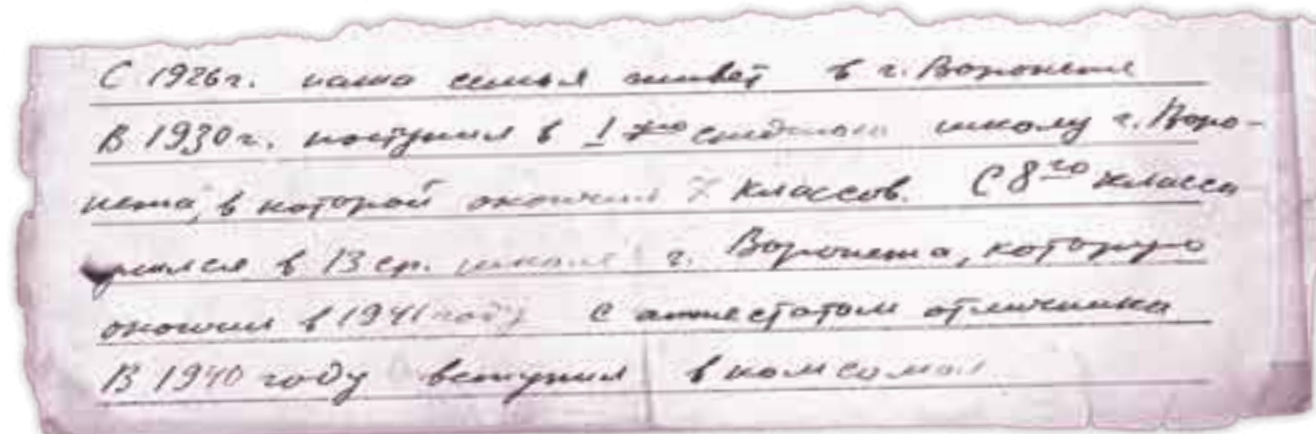 С 1926г. наша семья живет в г. Воронеже
В 1930г. поступил в I ую среднюю школу г. Воро-
нежа, в которой окончил 7 классов. С 8го класса
учился в 13 ср. школе г. Воронежа, которую
окончил в 1941 году с аттестатом отличника
В 1940 году вступил в комсомол